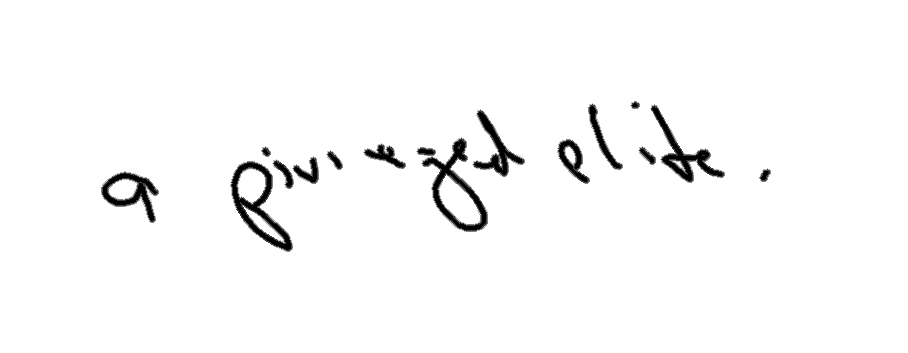 a privileged elite.